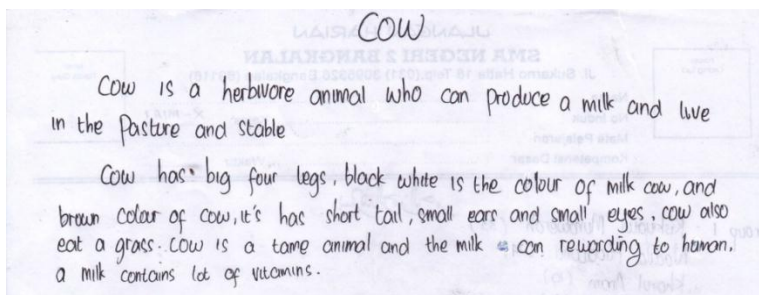 COW
Cow is a herbivore animal who can produce a milk and live
in the Pasture and Stable
Cow has big four legs, black white is the colour of milk cow, and
brown colour of cow, it's has short tail, small ears and small eyes. cow also
eat a grass. Cow is a tame animal and the milk can rewarding to human.
a milk contains lot of vitamins.